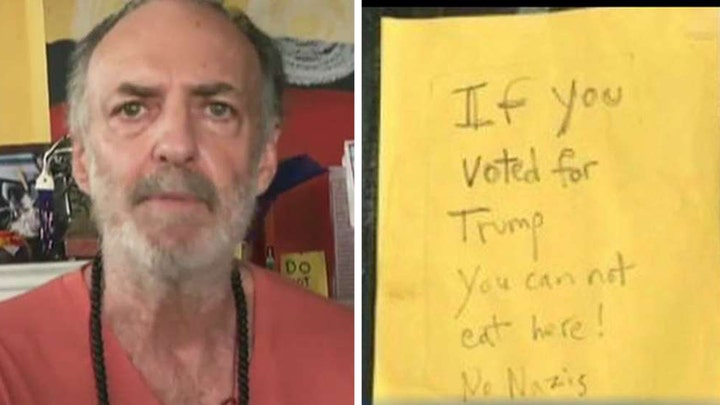 DO
NOT
If you
voted for
Trump
You can not
eat here!
No Nazis